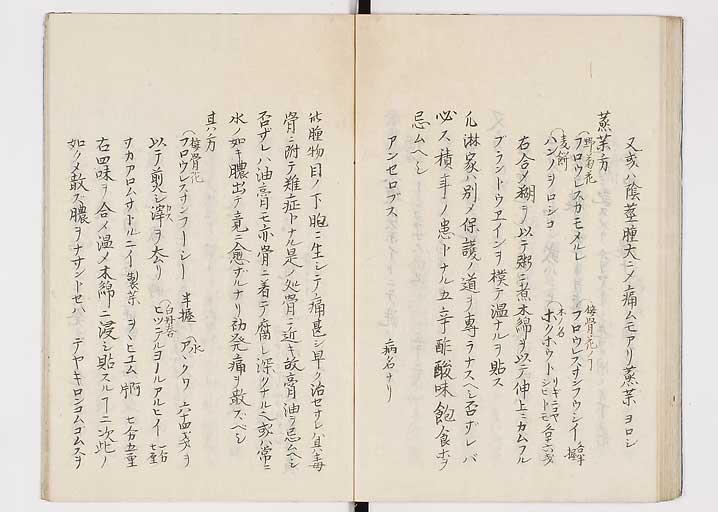 又或ハ陰莖腫大ニメ痛ムモアリ蒸茱ヨロシ
蒸茱方
(野菊花
フロウレスカモメルレ
(接骨花ノ丁
フロウレスサンフウシイ 各半握
(麦餅
ハンノヲロシコ
(木ノ名
右合メ糊ヲ以テ粥ニ煮木綿ヲ以テ伸上ニカムフル
ブランドウヱインヲ模テ温ナルヲ貼ス
凡淋家ハ別メ保護ノ道ヲ專ラナスヘシ否ザレバ
必ス積年ノ患トナル五辛酢酸味飽食ホヲ
忌ムヘシ
アンセロプス 病名ナリ
此腫物目ノ下胞ニ生シテ痛甚シ早ク治セサレハ其毒
骨ニ附テ難症トナル是ノ処骨ニ近キ故膏油ヲ忌ムヘシ
否ザレハ油膏モ亦骨ニ着テ腐レ深クナルヘシ或ハ常ニ
水ノ如キ膿出テ竟ニ愈ザルナリ初発痛ヲ散ズベシ
其ハ方
(接骨花
フロウレスサンフーシー 半握
水
アバクワ 六十四戔ヲ
以テ煎シ滓ヲ去リ
カス
(白礬
ヒツテルヨールアルヒイ
サカアロムサトルニイ 製茱ヲヽヒエム 七分五重
右四味ヲ合メ温メ木綿ニ浸シ貼スル丁二次此ノ
如クメ散ズ膿ヲナサントセハ テヤキロンコムゴムスヲ